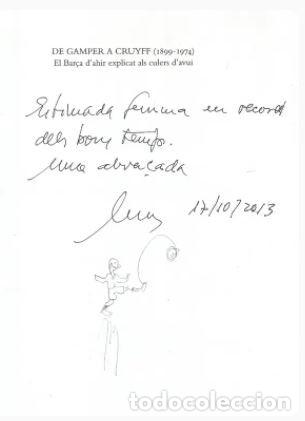 DE GAMPER A CRUYFF (1899-1974)
El Barça d'ahir explicat als culers d'avui
Estimada Gemma en record
dels bons temps.
Una abraçada
17/10/2013
todocoleccion